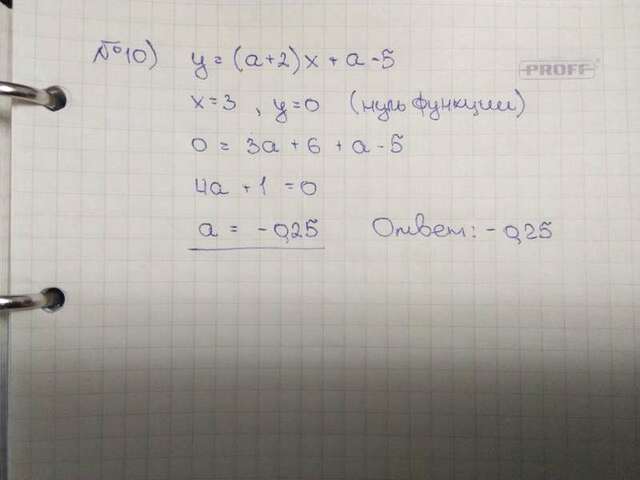 №10) y = (a+2)x + a - 5
PROFF
x=3 , y=0 (нуль функции)
0 = 3a + 6 + a - 5
4a + 1 = 0
a = -0,25 Ответ: -0,25